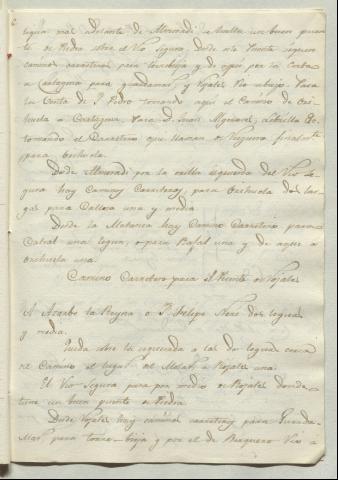 legua mas adelante de Almoradi se halla un buen puen
te de Piedra sobre el Rio Segura, desde este Puente siguen
caminos carreteros para torrebieja y de aqui por la Costa
a Cartagena para guardamar, y Rojales Rio abajo. Para
la Venta de Sn Pedro tomando aqui el Camino de Ori
huela a Cartagena, Para Dn Juan
tomando el Carretero que llaman de finalmte
para Orihuela.
Desde Almoradi por la orilla izquierda del Rio Se
gura hay Camino Carretero, para Orihuela dos le
guas para Callosa una y media.
Desde la Matanza hay Camino Carretero para
Catral una legua, o para Rafal una y de aqui a
Orihuela una.
Camino Carretero para el Puente de Rojales
A Azarbe la Reyna o Sn Felipe Neri dos leguas
y media.
Queda sobre la izquierda a las dos leguas cerca
del Camino el lugar del a Rojales una.
El Rio Segura pasa por medio de Rojales donde
tiene un buen puente de Piedra
Desde Rojales hay caminos carreteros para Guarda
mar, para torre-bieja y por el de Rio a